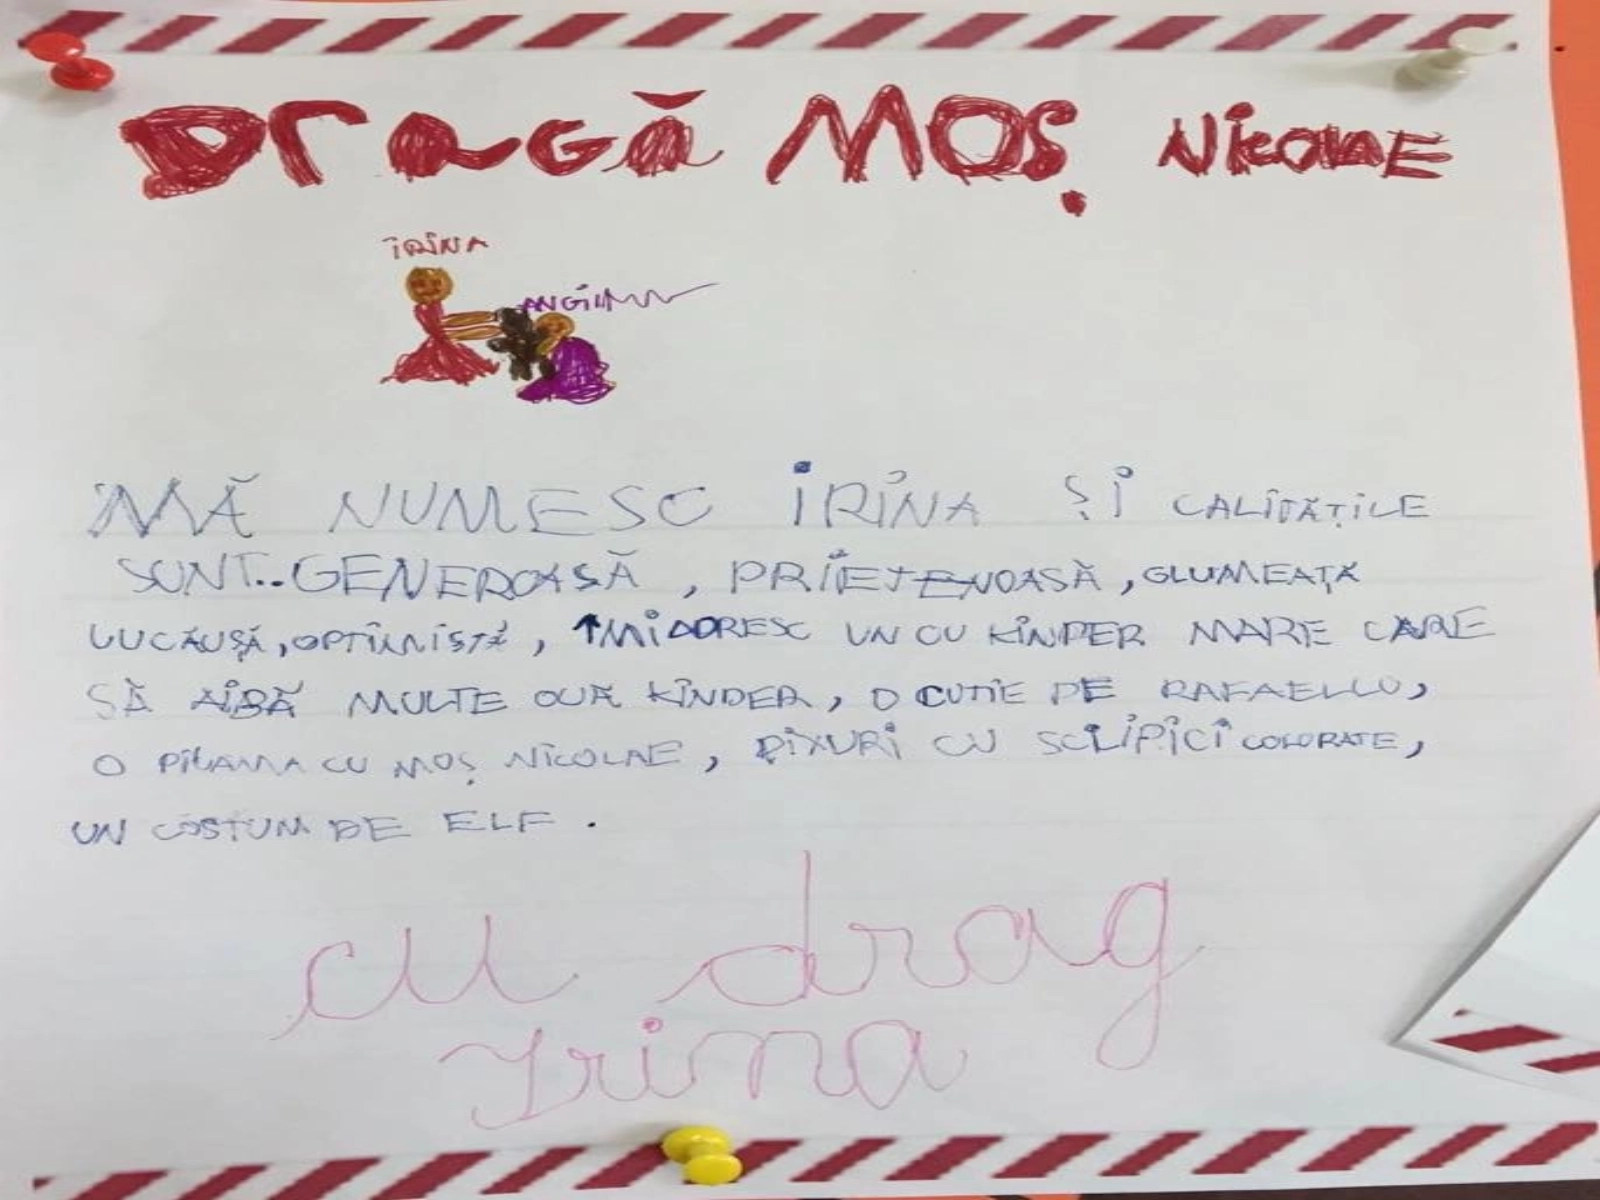 DragĂ MOȘ NicolaE
iRiNA
MĂ NUMESC iRiNA Și CALiTĂȚiLE
SUNT..GENEROASĂ, PRiETENOASĂ, GLUMEAȚĂ
JUCĂUȘĂ, OPTiMiSTĂ, Mi DORESC UN OU KiNDER MARE CARE
SĂ AiBĂ MULTE OUĂ KiNDER, O CUTiE DE RAFAELLO,
O PiJAMA CU MOȘ NiCOLAE, PiXURi CU SCLiPiCi COLORATE,
UN COSTUM DE ELF.
cu drag
Irina